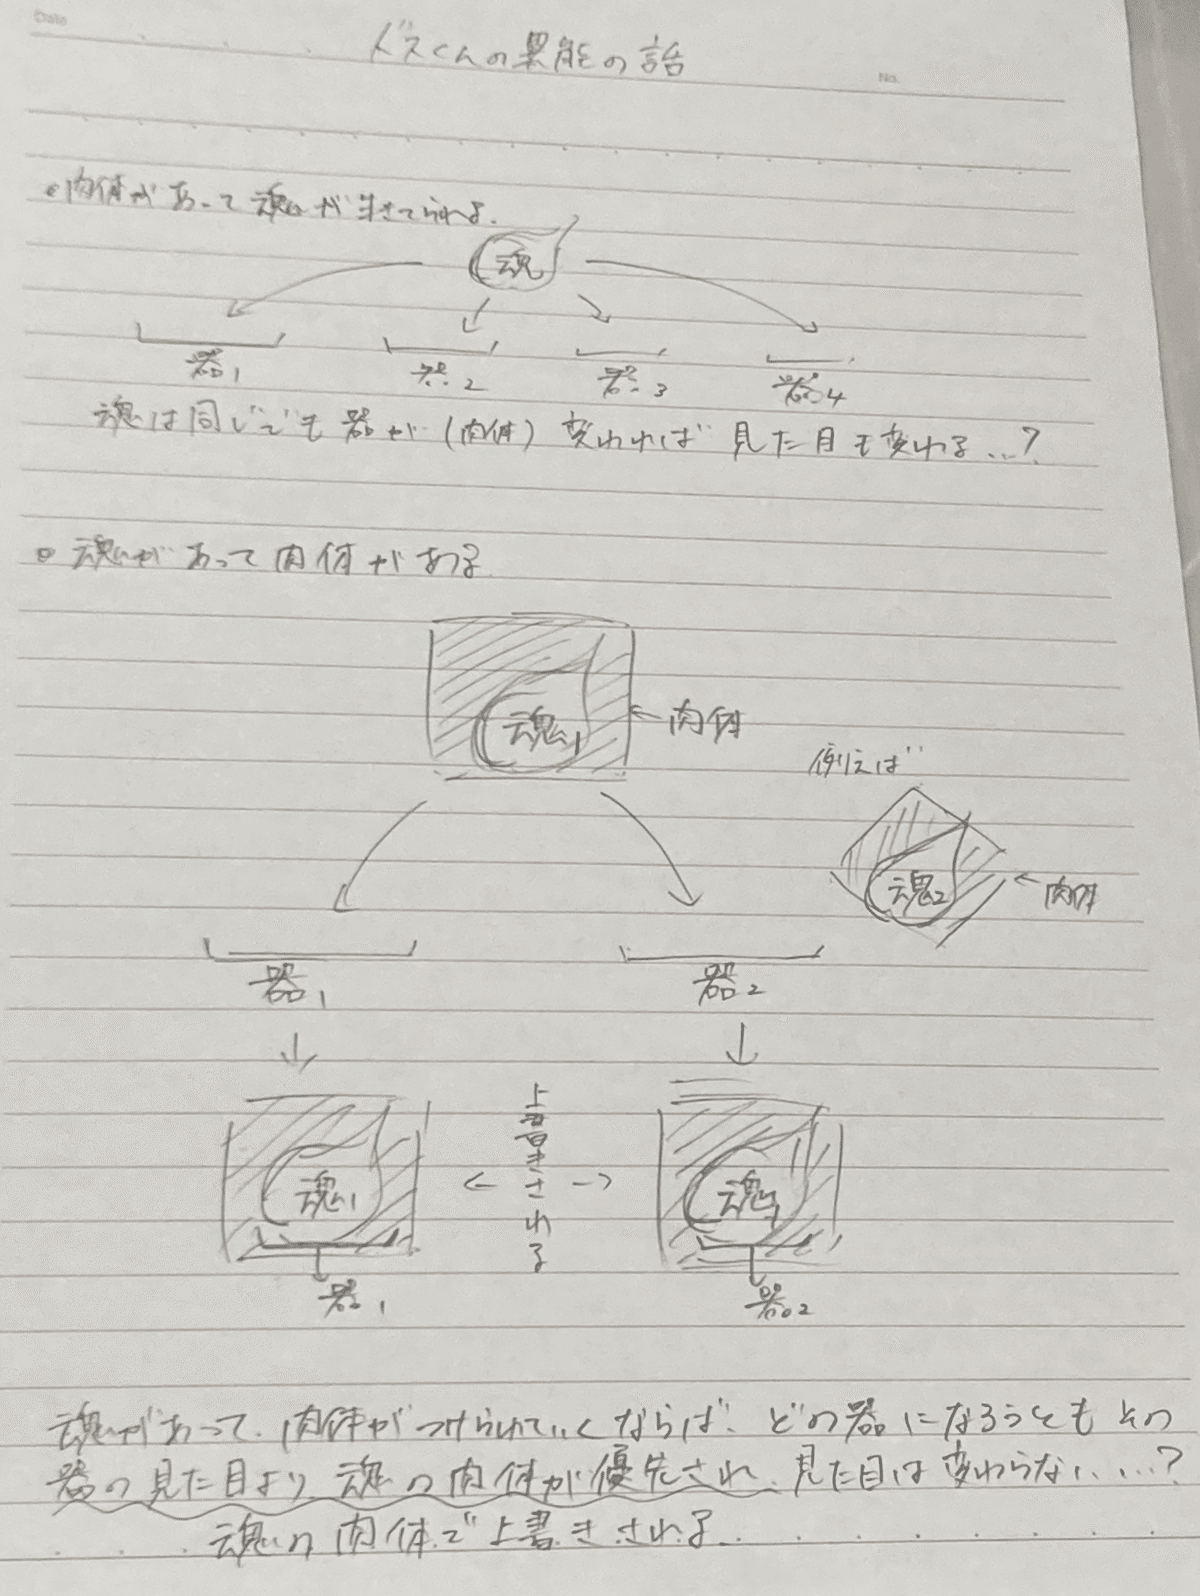 Date
ドスくんの異能の話
No.
。肉体があって魂が生きてられる.
魂
器1
器2
器3
器4
魂は同じでも器が(肉体)変われば見た目も変わる...?
。魂があって肉体がある
魂1
←肉体
例えば
魂2
←肉体
器1
器2
上書きされる
魂1
魂1
器1
器2
魂があって、肉体がつけられていくならば、どの器になろうともその
器の見た目より、魂の肉体が優先され、見た目は変わらない...?
魂の肉体で上書きされる